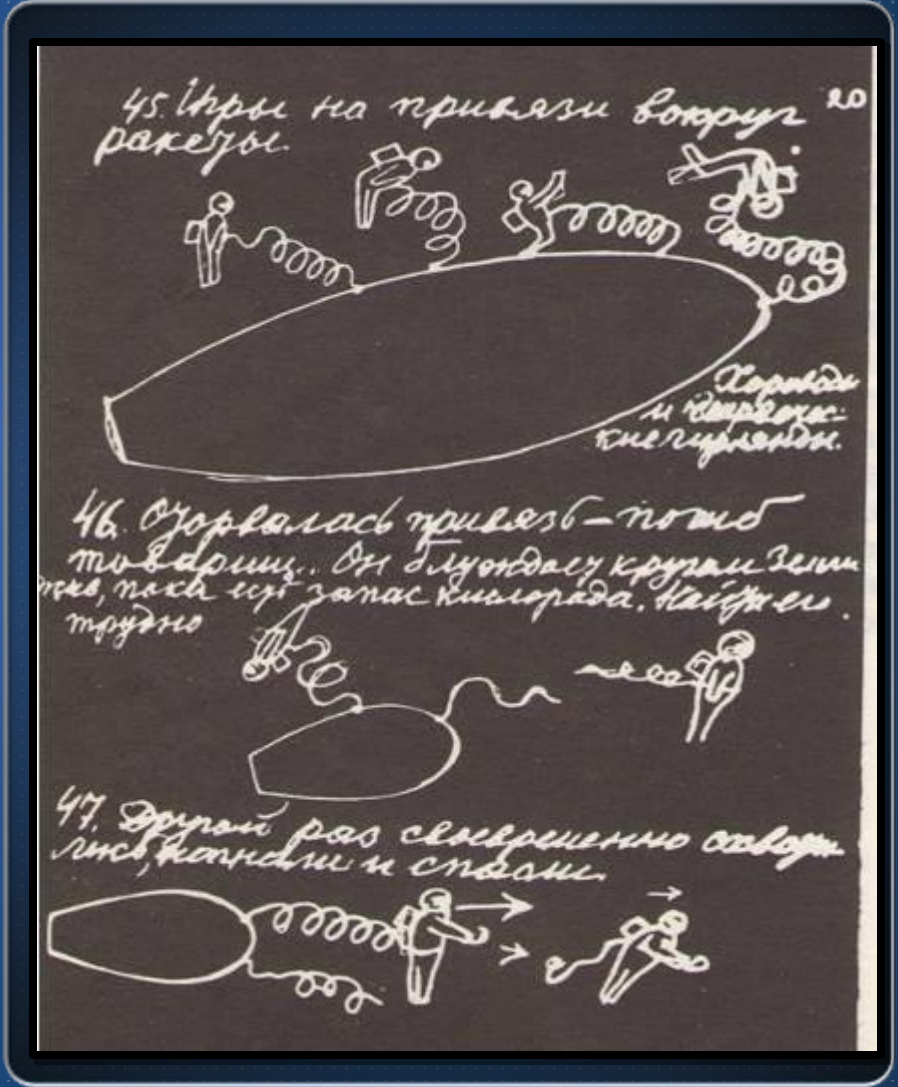 45. Игры на привязи вокруг 20
ракеты.
Хороводы
и
кие гирлянды.
46. Оторвалась привязь – погиб
товарищ.. Он блуждает кругом Земли
, пока есть запас кислорода. Найти его
трудно
47. Другой раз своевременно схвати
лись, нагнали и спасли.